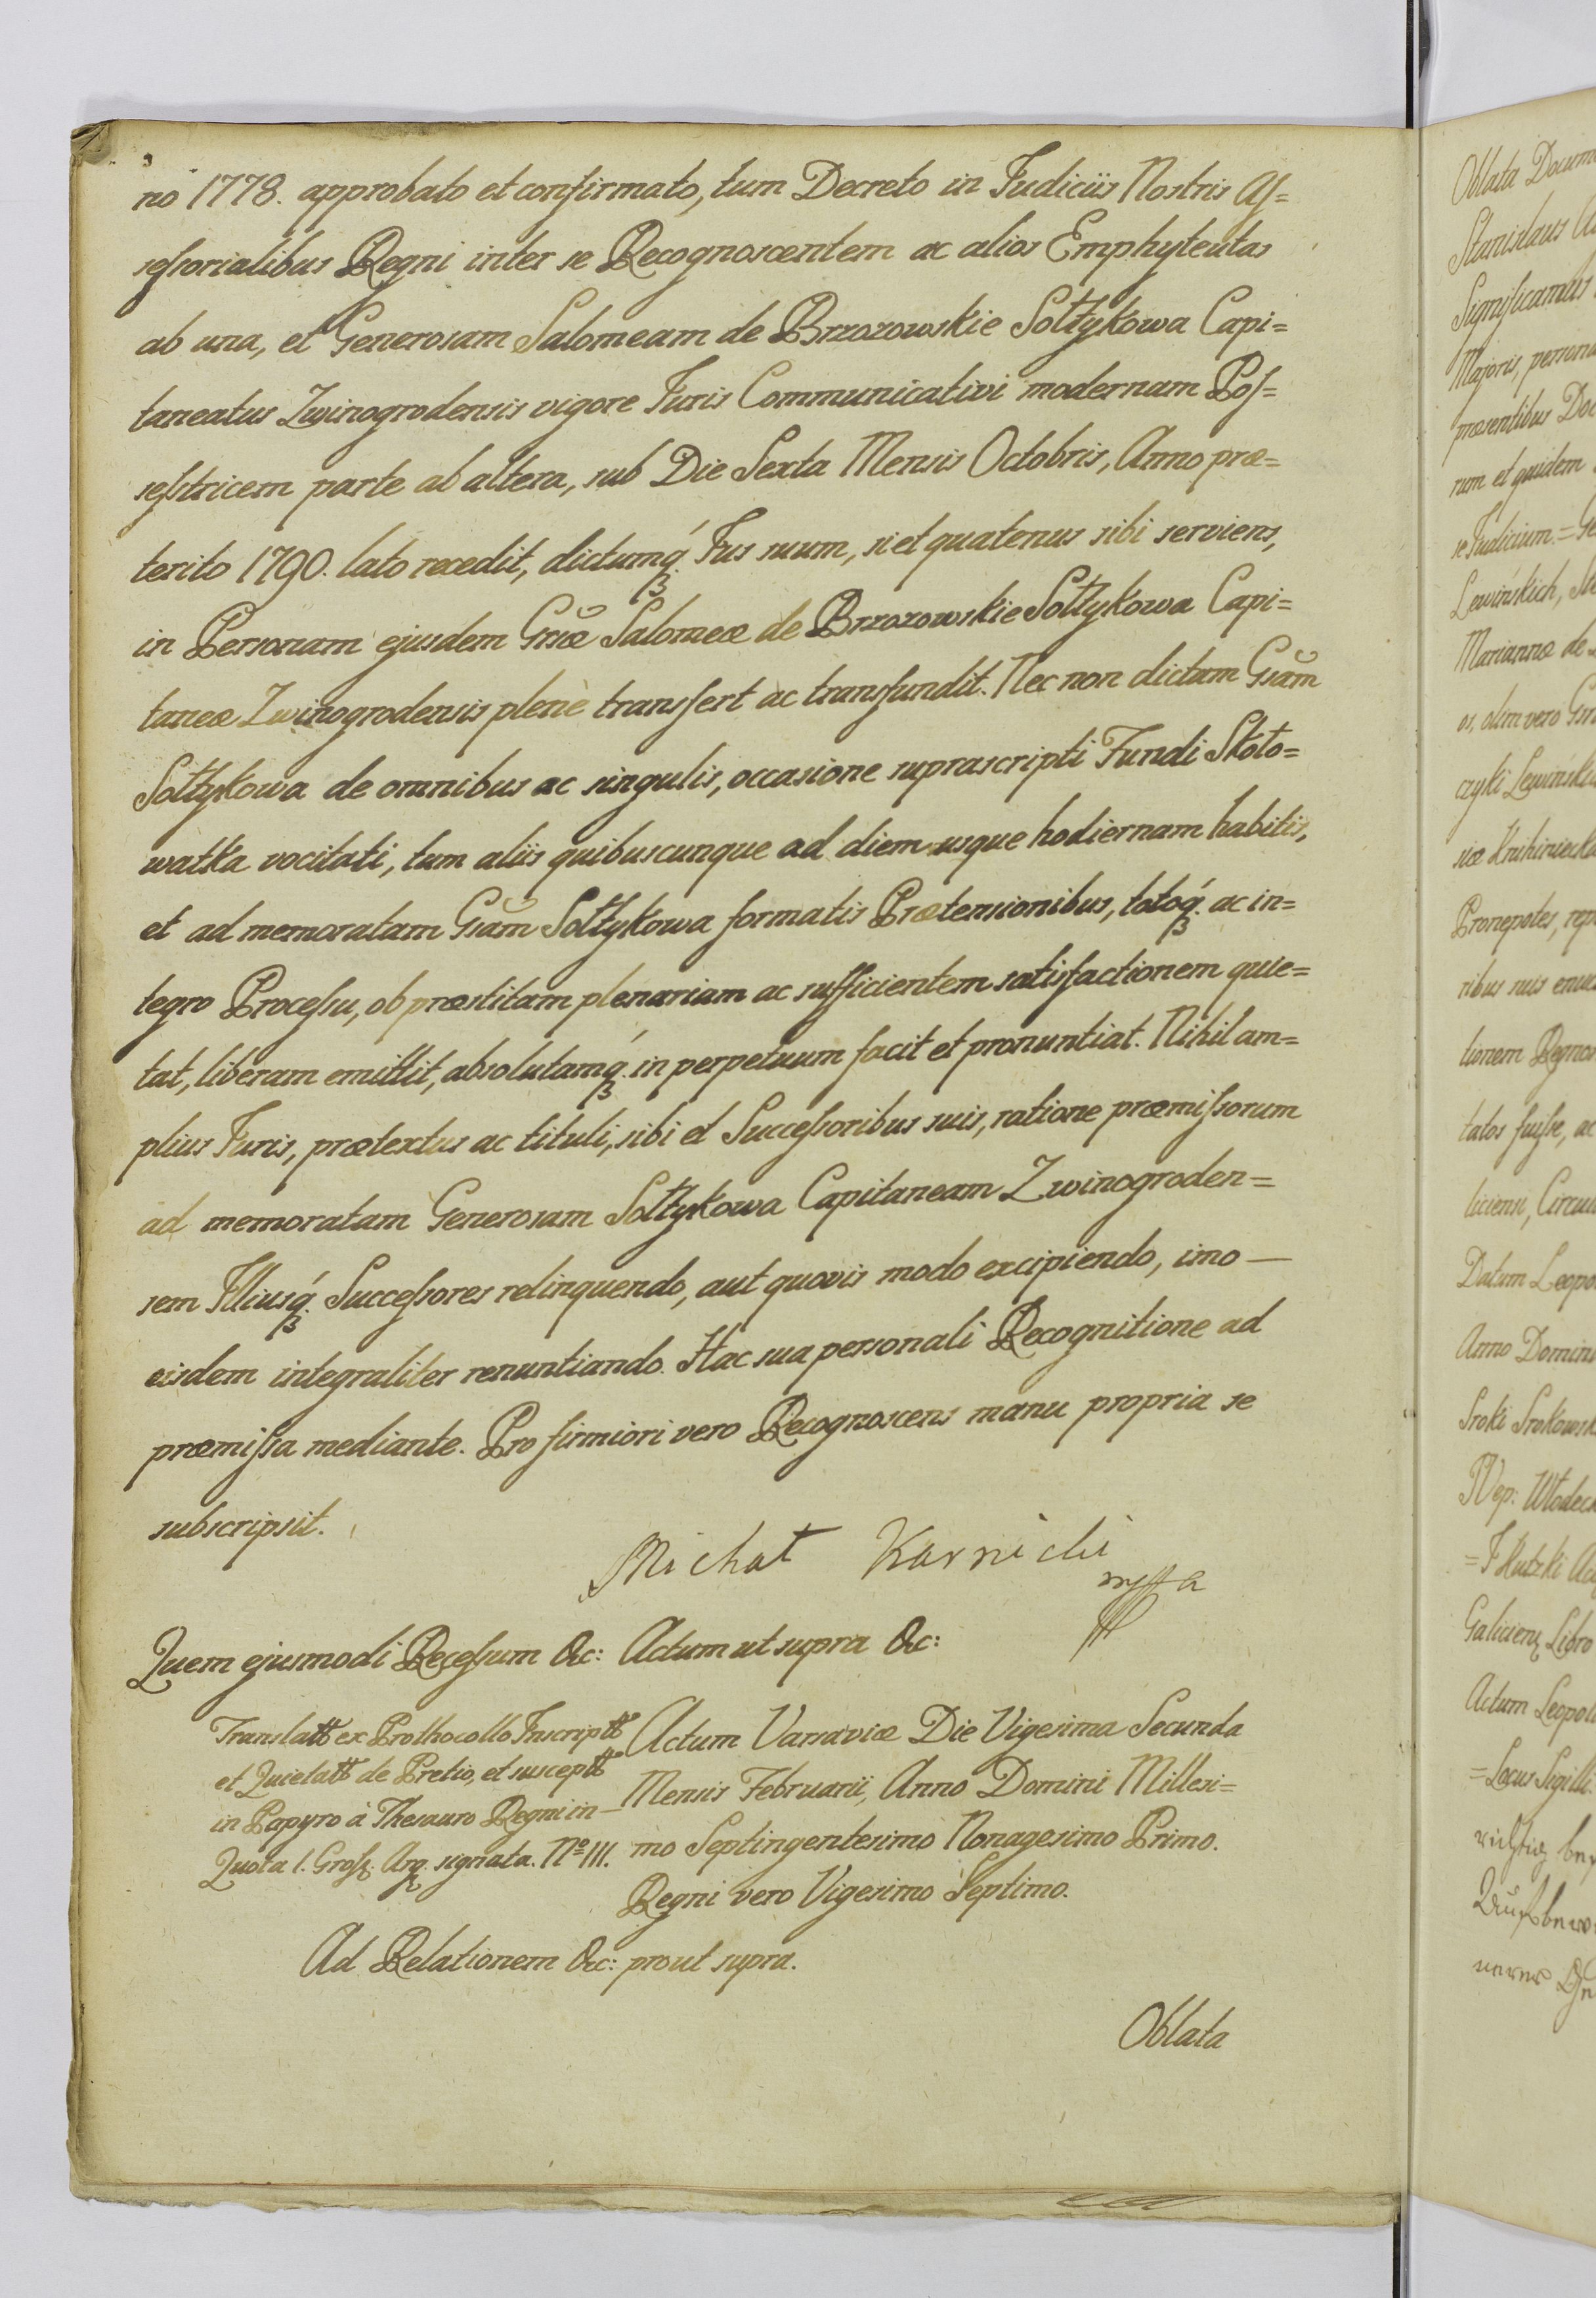 no 1778. approbato et confirmato, tum Decreto in Judiciis Nostris As=
sessorialibus Regni inter se Recognoscentem ac alios Emphyteutas
ab una, et Generosam Salomeam de Brzozowskie Sołtykowa Capi=
taneatus Zwinogrodensis vigore Juris Communicativi modernam Pos=
sestricem parte ab altera, sub Die Sexta Mensis Octobris, Anno præ=
terito 1790. lato recedit, dictumq́ꝫ Jus suum, si et quatenus sibi serviens,
in Personam ejusdem Gnsæ Salomeæ de Brzozowskie Sołtykowa Capi=
taneæ Zwinogrodensis plenè transfert ac transfundit. Nec non dictam Gsam
Sołtykowa de omnibus ac singulis, occasione suprascripti Fundi Skoło=
watka vocitati, tum aliis quibuscunque ad diem usque hodiernam habitis,
et ad memoratam Gsam Sołtykowa formatis Prætensionibus, totoq́ꝫ ac in=
tegro Processu, ob præstitam plenariam ac sufficientem satisfactionem quie=
tat, liberam emittit, absolutamq́ꝫ in perpetuum facit et pronuntiat. Nihil am=
plius Juris, prætextus ac tituli, sibi et Successoribus suis, ratione præmissorum
ad memoratam Generosam Sołtykowa Capitaneam Zwinogroden=
sem Illiusq́ꝫ Successores relinquendo, aut quovis modo excipiendo, imo —
eisdem integraliter renuntiando. Hac sua personali Recognitione ad
præmissa mediante. Pro firmiori vero Recognoscens manu propria se
subscripsit.
Michał Karnicki
mppa
Quem ejusmodi Recessum &c: Actum ut supra &c:
Translatt ex Prothocollo Inscriptt
et Quietatt de Pretio, et susceptt
in Papyro à Thesauro Regni in —
Quota 1. Gross. Arg. signata. No III.
Actum Varsaviæ Die Vigesima Secunda
Mensis Februarii, Anno Domini Millesi=
mo Septingentesimo Nonagesimo Primo.
Regni vero Vigesimo Septimo.
Ad Relationem &c: prout supra.
Oblata
Oblata
Stanislaus
Significamus
Majoris,
præsentibus
rum et quidem
se Judicium =
Lewińskich,
Mariannæ de
os, olim vero
czyki
Pronepotes,
ribus suis
tionem
tatos fuisse, ac
liciensi,
Datum
Anno Domini
Sroki
=
Libro
Actum
=Locus Sigilli